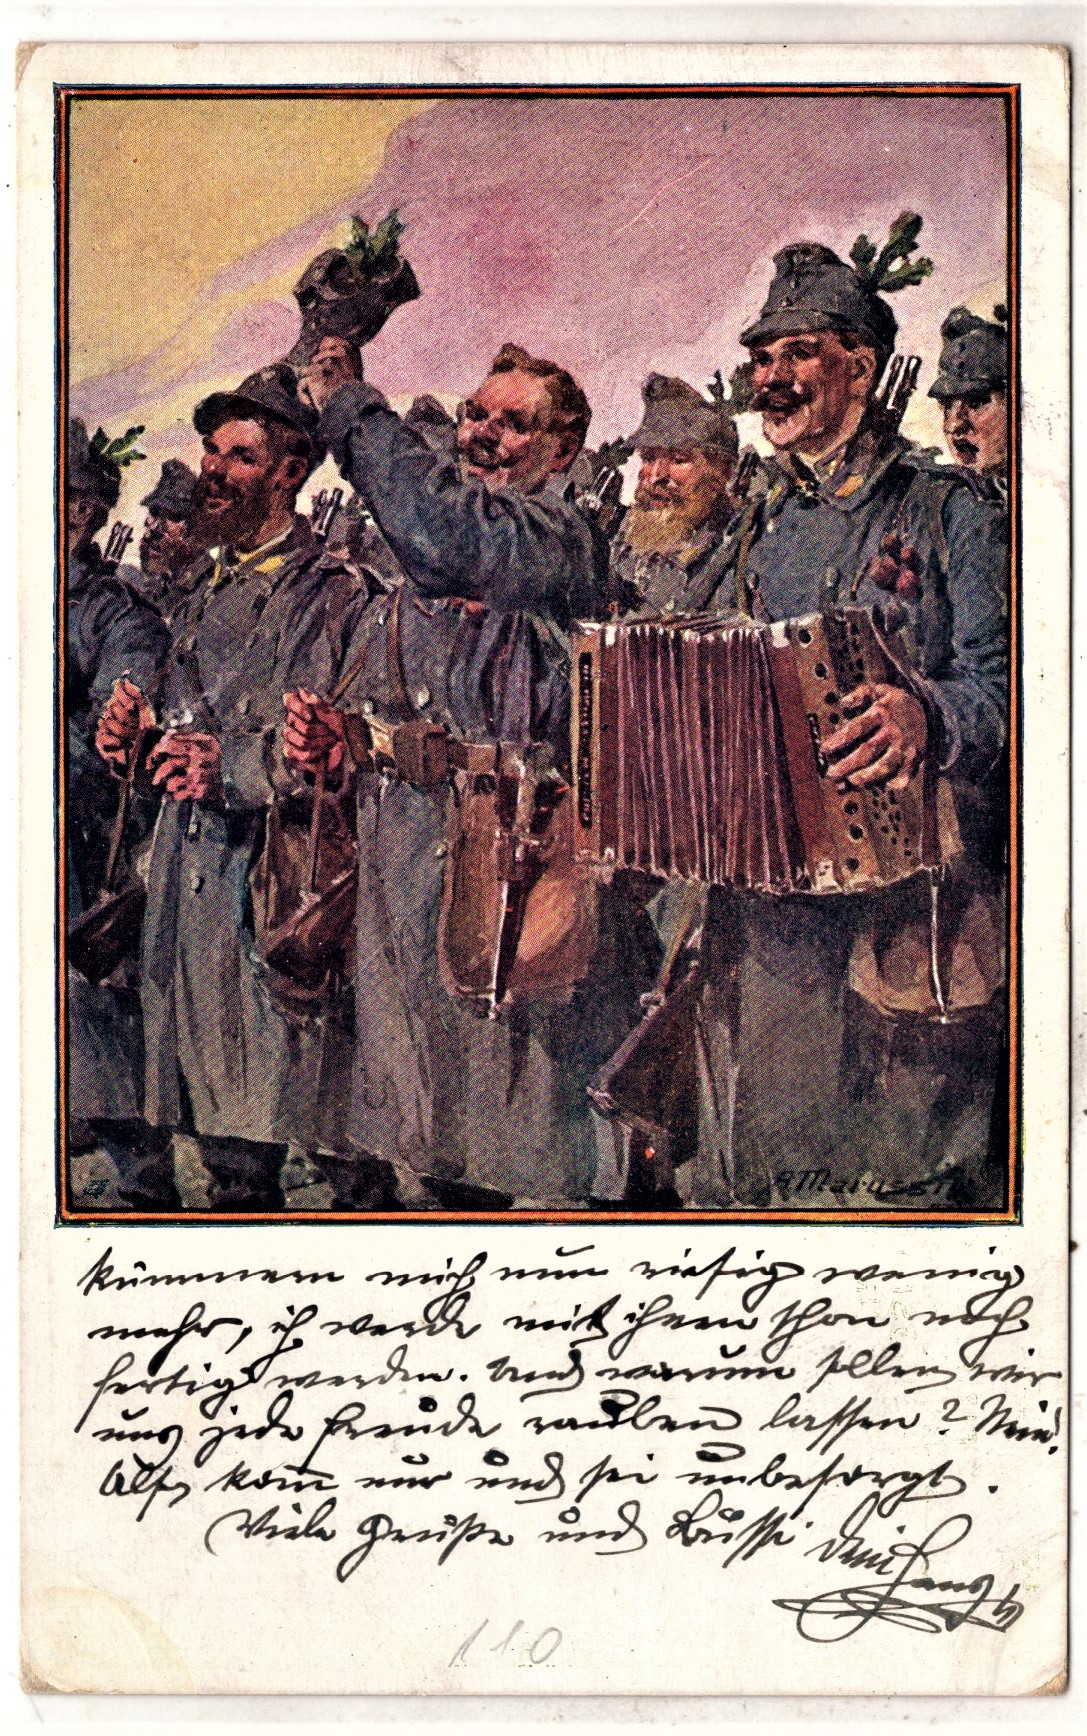 A. Marussig
kümmern mich nun riesig wenig
mehr, ich werde mit ihnen schon noch
fertig werden. Und warum sollen wir
uns jede Freude rauben lassen? Nein!
Also komm nur und sei unbesorgt.
Viele Grüße und Bussi Dein
Hans
110